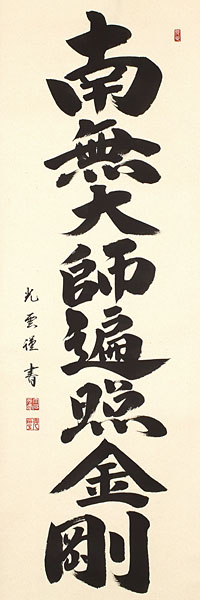 南無大師遍照金剛
光雲謹書